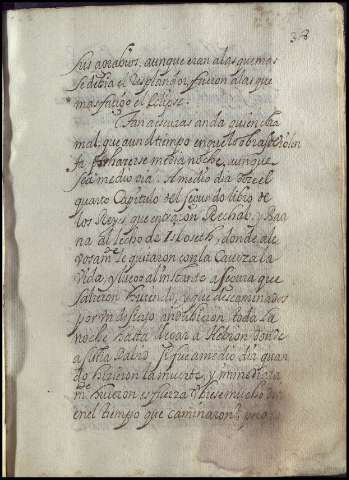 38
sus agrabios. aunque eran a las que mas
se debia el Resplandor, fueron a las que
mas fatigo el Eclipse.
Tan a escuras anda quien obra
mal, que aun el tiempo en que lo obra
haserse media noche, aunque
sea medio dia. A medio dia dize el
quarto Capitulo del segundo libro de
los Reys que entraron Rechab, y Baa
na al lecho de Isboseth, donde ale
vosam.te le quitaron con la Caveza la
vida, y luego al instante asegura que
salieron huiendo, y que descaminados
por un desierto andubieron toda la
noche hasta llegar a Hebron donde
estaba David. Si fue a medio dia quan
do hizieron la muerte, y inmediata
m.te huieron es fuerza q̃ hisese mucho dia
en el tiempo que caminaron; pero